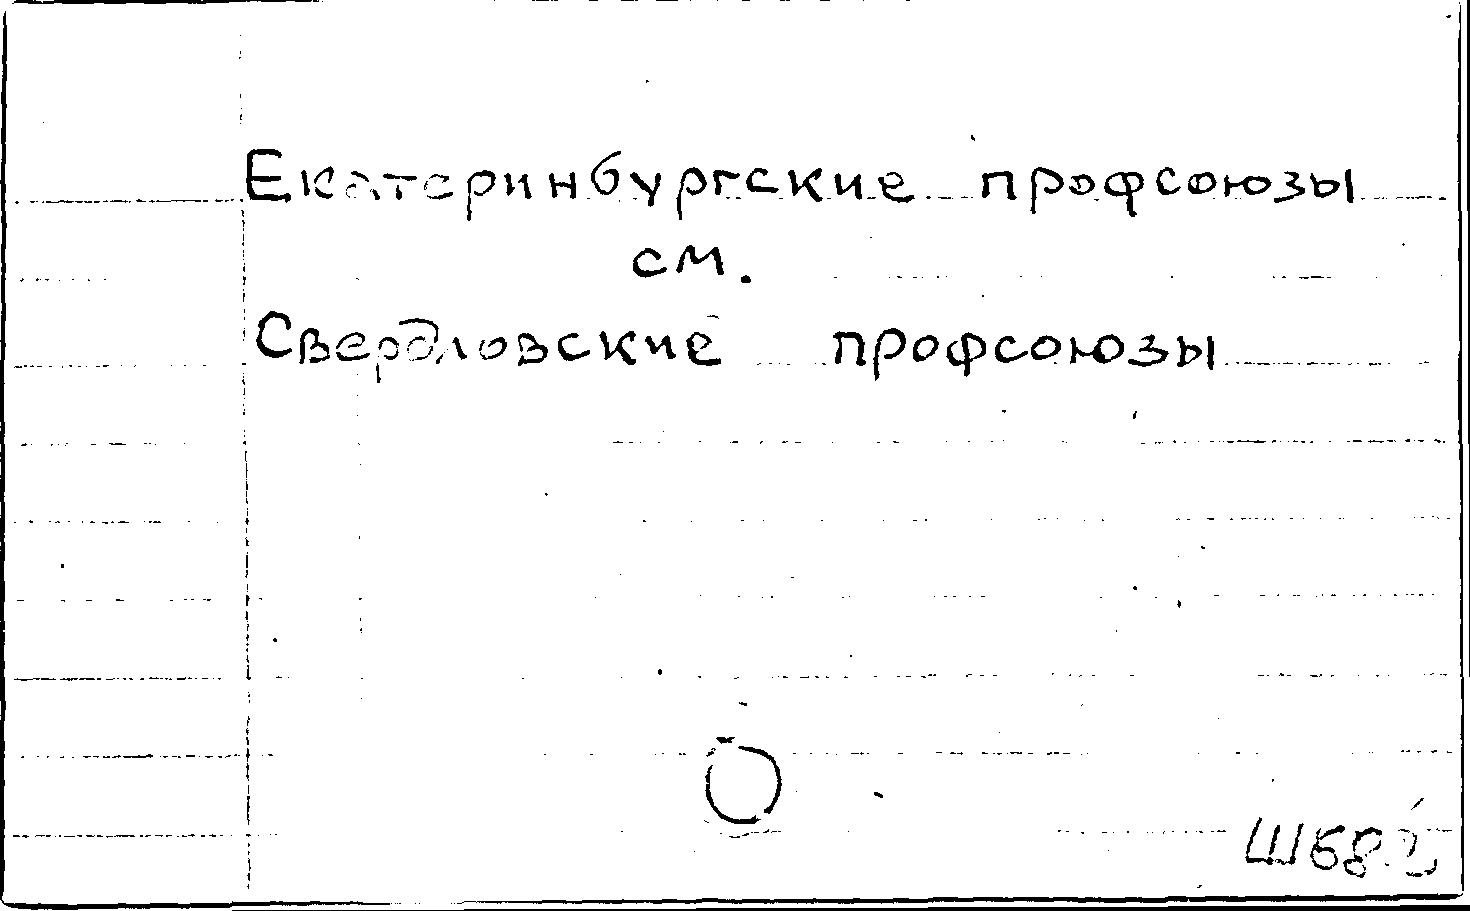 Екатеринбургские профсоюзы
см.
Свердловские профсоюзы